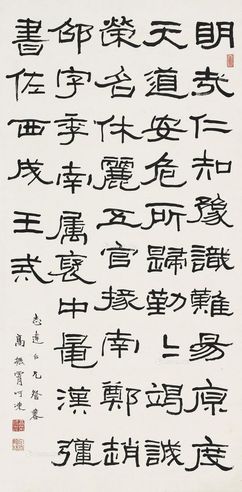 明哲仁知豫識難易原度
天道安危所歸勤〻竭誠
榮名休麗五官掾南鄭趙
邵字季南属褒中鼂漢彊
書佐西成王戒
志遠仁兄
高振霄呵凍